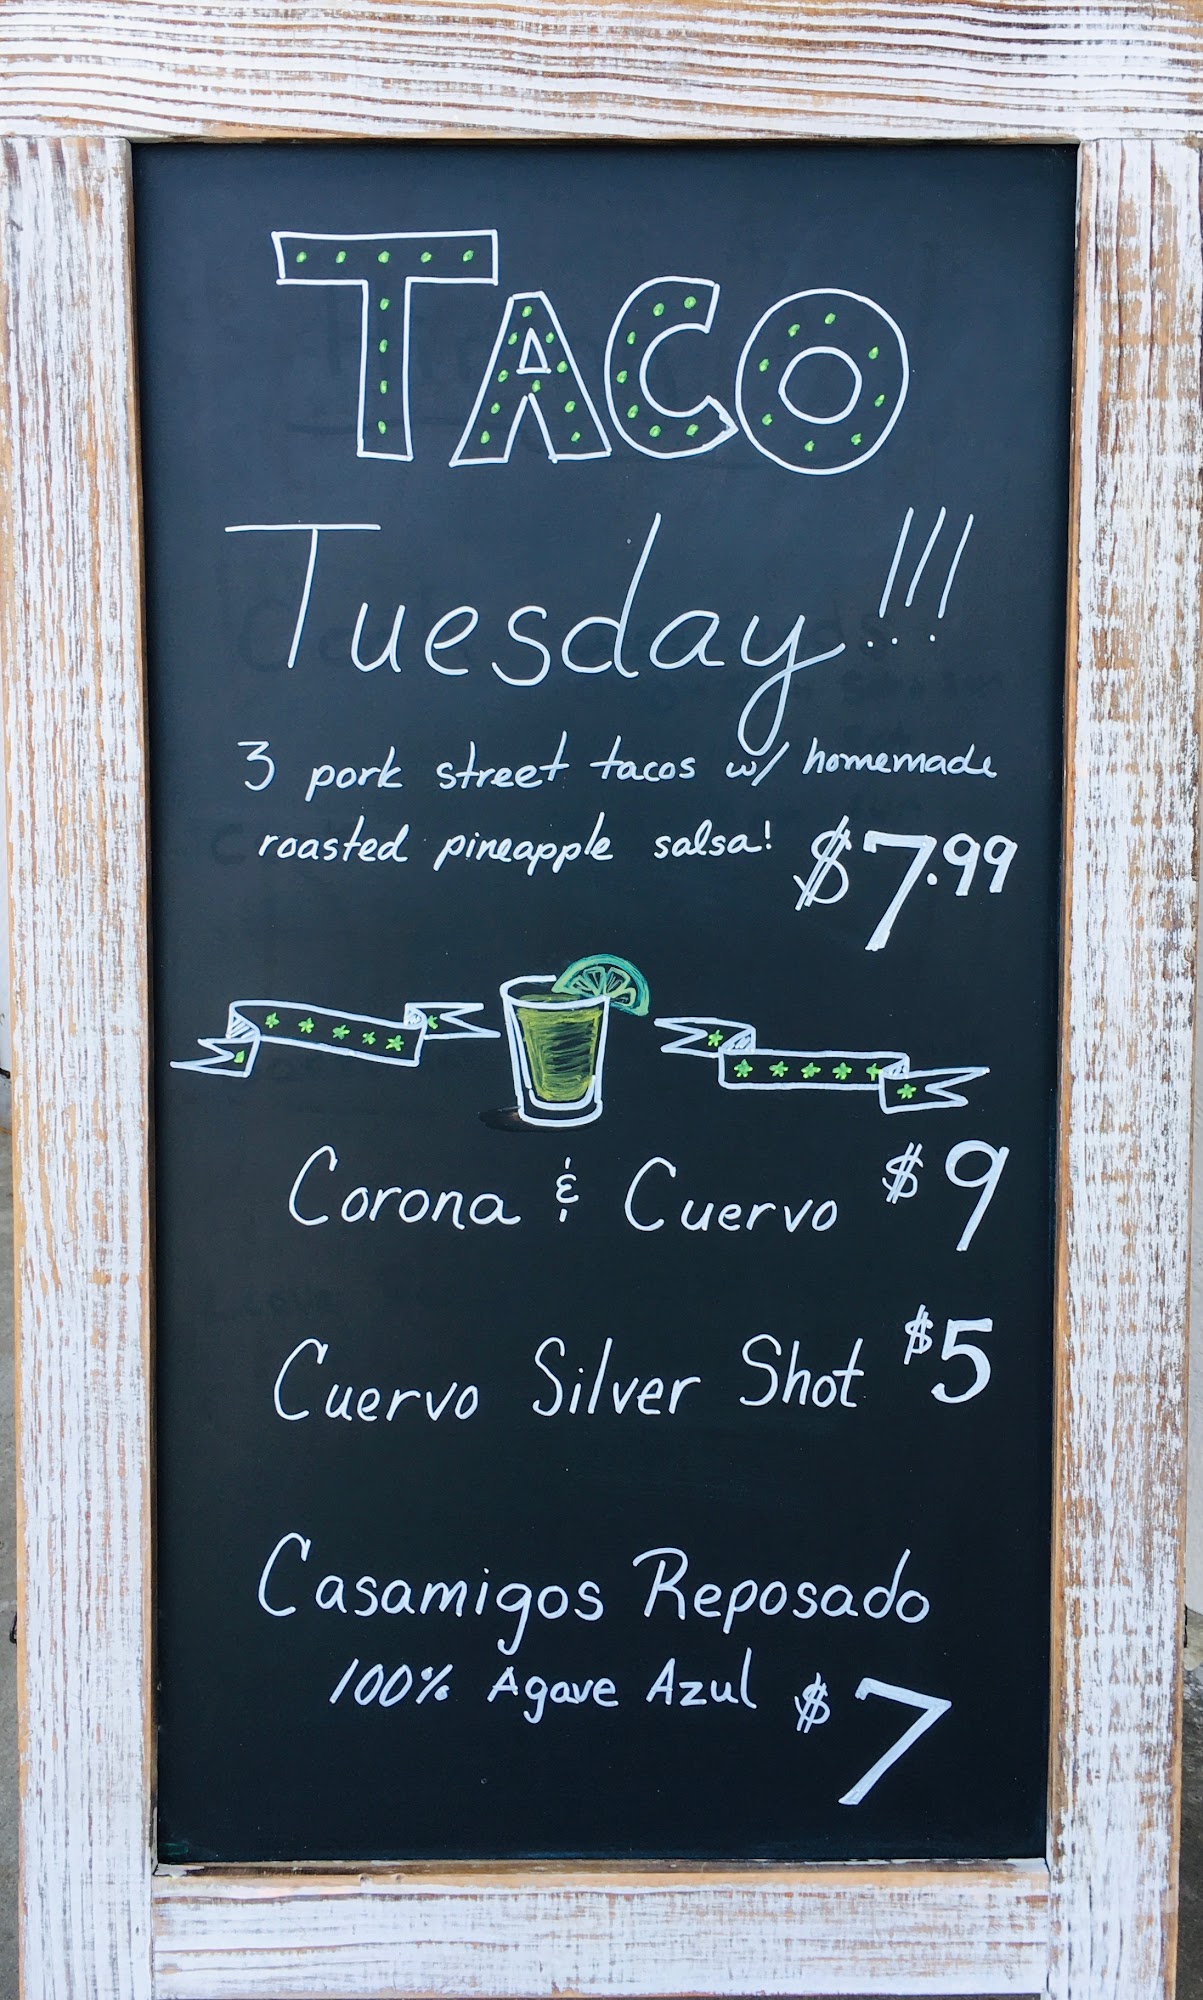 TACO
Tuesday!!!
3 pork street tacos w/ homemade
roasted pineapple salsa! $7.99
Corona & Cuervo $9
Cuervo Silver Shot $5
Casamigos Reposado
100% Agave Azul $7